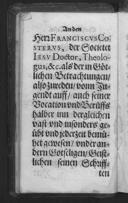 An den
Herr FRANCISCVS CO-
STERVS, der Societet
IESV Doctor, Theolo-
gus, &c. als der in Göt-
lichen Betrachtungen/
also zureden/ vonn Ju-
gendt auff/ auch seiner
Vocation und Beruffs
halber inn dergleichen
vast und insonders ge-
übt und jederzeit bemü-
het gewesen/ under an-
dern Gottseligen/ Geist-
lichen seinen Schriff-
ten